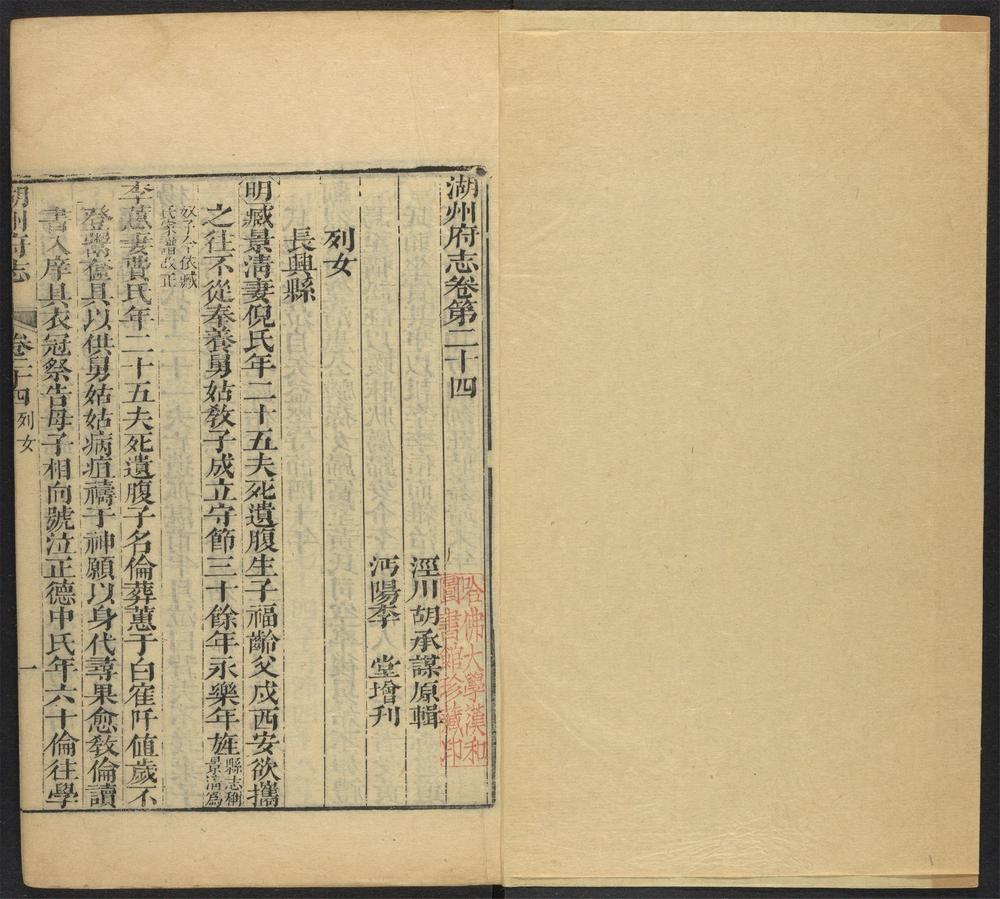 湖州府志卷第二十四
涇川胡承謀原輯
沔陽李 堂增刊
列女
長興縣
明臧景淸妻倪氏年二十五夫死遺腹生子福齡父戍西安欲攜
之往不從奉養舅姑教子成立守節三十餘年永樂年旌縣志稱景淸爲
奴子今依臧氏宗譜改正
李蕙妻費氏年二十五夫死遺腹子名倫葬蕙于白窀阡值歲不
登鬻奩具以供舅姑姑病疽禱于神願以身代尋果愈教倫讀
書入庠具衣冠祭告母子相向號泣正德中氏年六十倫往學
湖州府志
卷二十四 列女
一
哈佛大學漢和
圖書館珍藏印